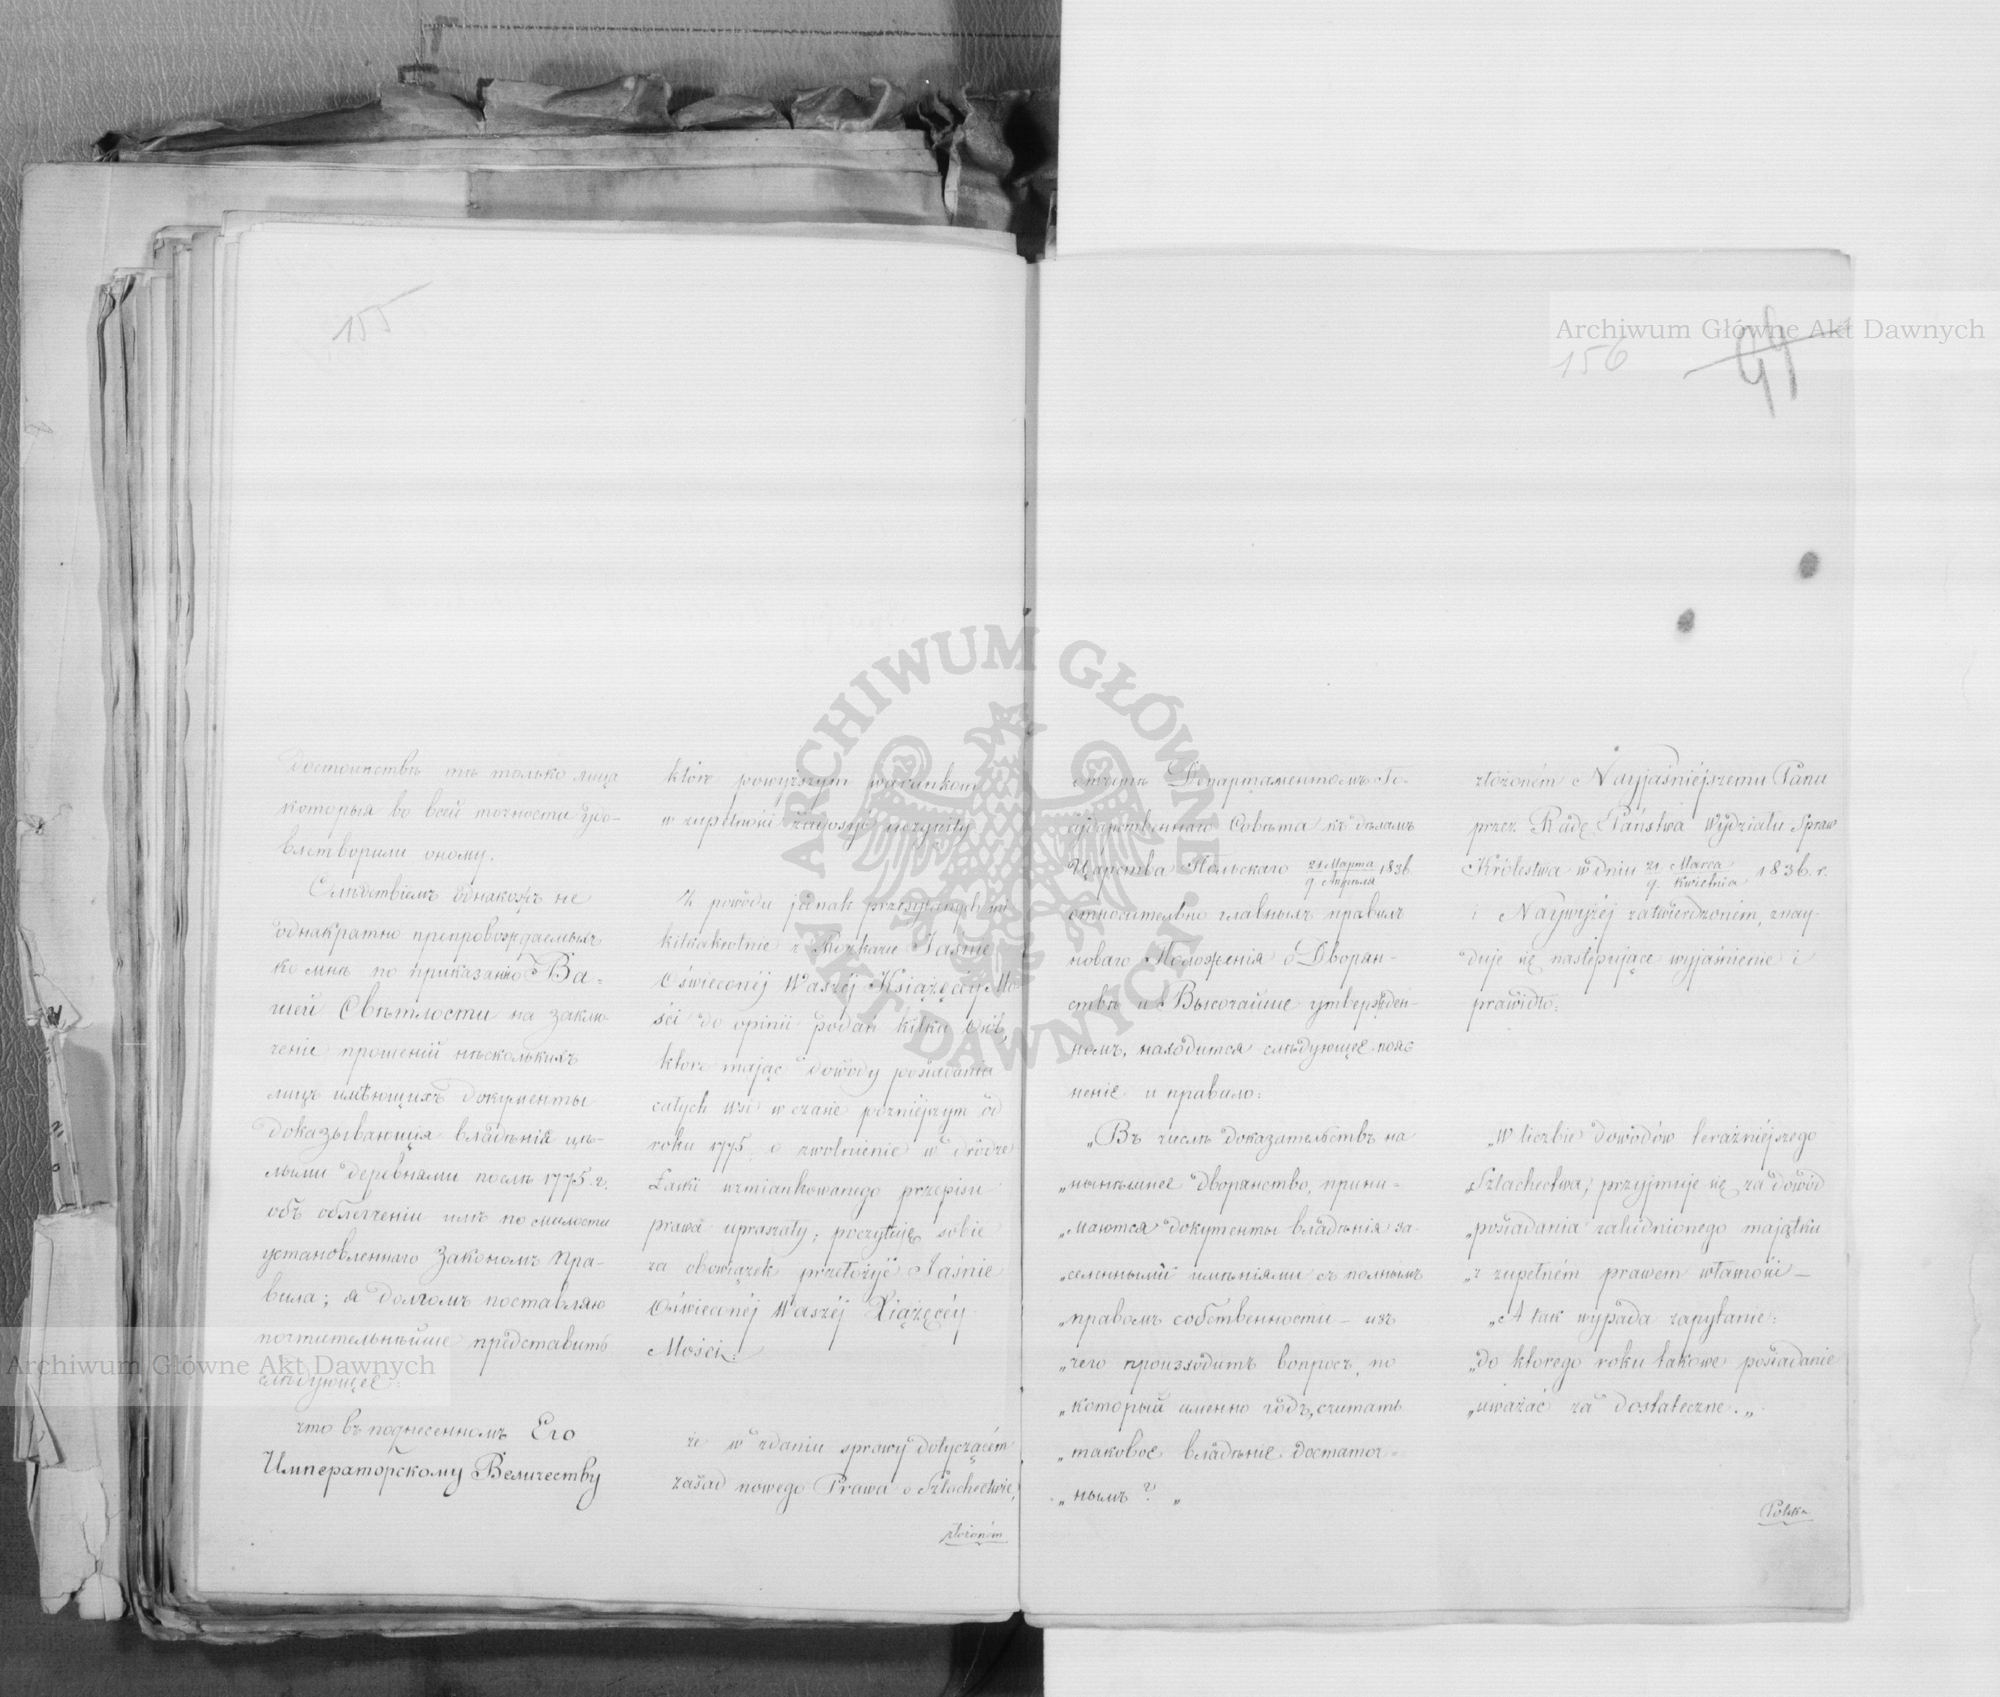 155
достоинствѣ тѣ только лица
которыя во всей точности удо-
влетворили оному.
Слѣдствіемъ однакожъ не
однакратно препровождаемыхъ
ко мнѣ по приказанію Ва-
шей Свѣтлости на заклю-
ченіе прошеній нѣсколькихъ
лицъ имѣющихъ документы
доказывающія владѣнія цѣ-
лыми деревнями послѣ 1775 г.
объ облегченіи имъ по милости
установленнаго закономъ пра-
вила; я долгомъ поставляю
почтительнѣйше представить
слѣдующее:
что въ поднесенномъ Его
Императорскому Величеству
które powyższym warunkom
w zupełności zadosyć uczyniły.
Z powodu jednak przesyłanych mi
kilkakrotnie z Rozkazu Jaśnie
Oświeconéj Waszéj Książęcéy Mo
ści do opinii podań kilku osób,
które mając dowody posiadania
całych wsi w czasie pozniejszym od
roku 1775, o zwolnienie w drodze
Łaski wzmiankowanego przepisu
prawa upraszały; poczytuję sobie
za obowiązek przełożyć Jaśnie
Oświeconéj Waszéj Xiążęcéy
Mości:
że w zdaniu sprawy dotyczącém
zasad nowego Prawa o Szlachectwie,
złożoném
156
отчетѣ Департаментомъ Го-
сударственнаго Совѣта къ дѣламъ
Царства Польскаго 21 Марта / 9 Апрѣля 1836
относительно главныхъ правилъ
новаго Положенія о Дворян-
ствѣ и Высочайше утвержден-
номъ, находится слѣдующее пояс
неніе и правило:
„Въ числѣ доказательствъ на
„нынѣшнее дворянство, прини-
„маются документы владѣнія за-
„селенными имѣніями съ полнымъ
„правомъ собственности – изъ
„чего происходитъ вопросъ, по
„который именно годъ, считать
„таковое владѣніе достаточ-
„нымъ? „
złożoném Nayjaśniéjszemu Panu
przez Radę Państwa Wydziału Spraw
Królestwa w dniu 21 Marca / 9 Kwietnia 1836. r.
i Naywyżéj zatwierdzoném, znay-
duje się następujące wyjaśnienie i
prawidło:
„W liczbie dowodów teraźniejszego
„Szlachectwa, przyjmuje się za dowód
„posiadania zaludnionego majątku
„z zupełném prawem własności –
„A tak wypada zapytanie:
„do którego roku takowe posiadanie
„uważać za dostateczne. „
Polska
Archiwum Główne Akt Dawnych
Archiwum Główne Akt Dawnych
ARCHIWUM GŁÓWNE · AKT DAWNYCH ·